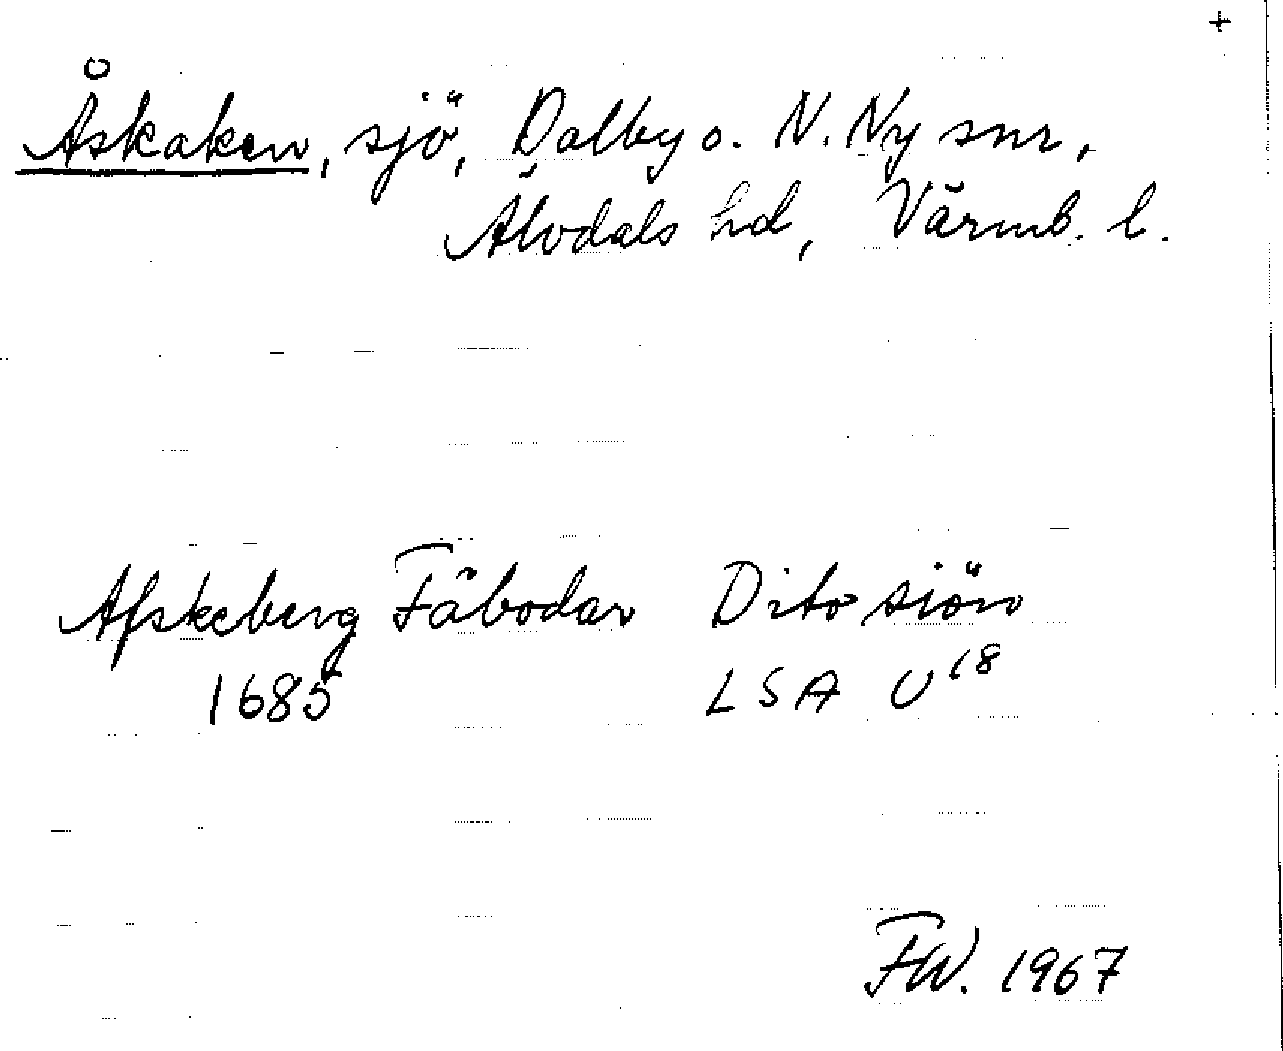 +
Åskaken, sjö, Dalby o. N. Ny snr,
Älvdals hd, Värmb. l.
Afskeberg Fäbodar Dito siön
1685 LSA U18
FW. 1967